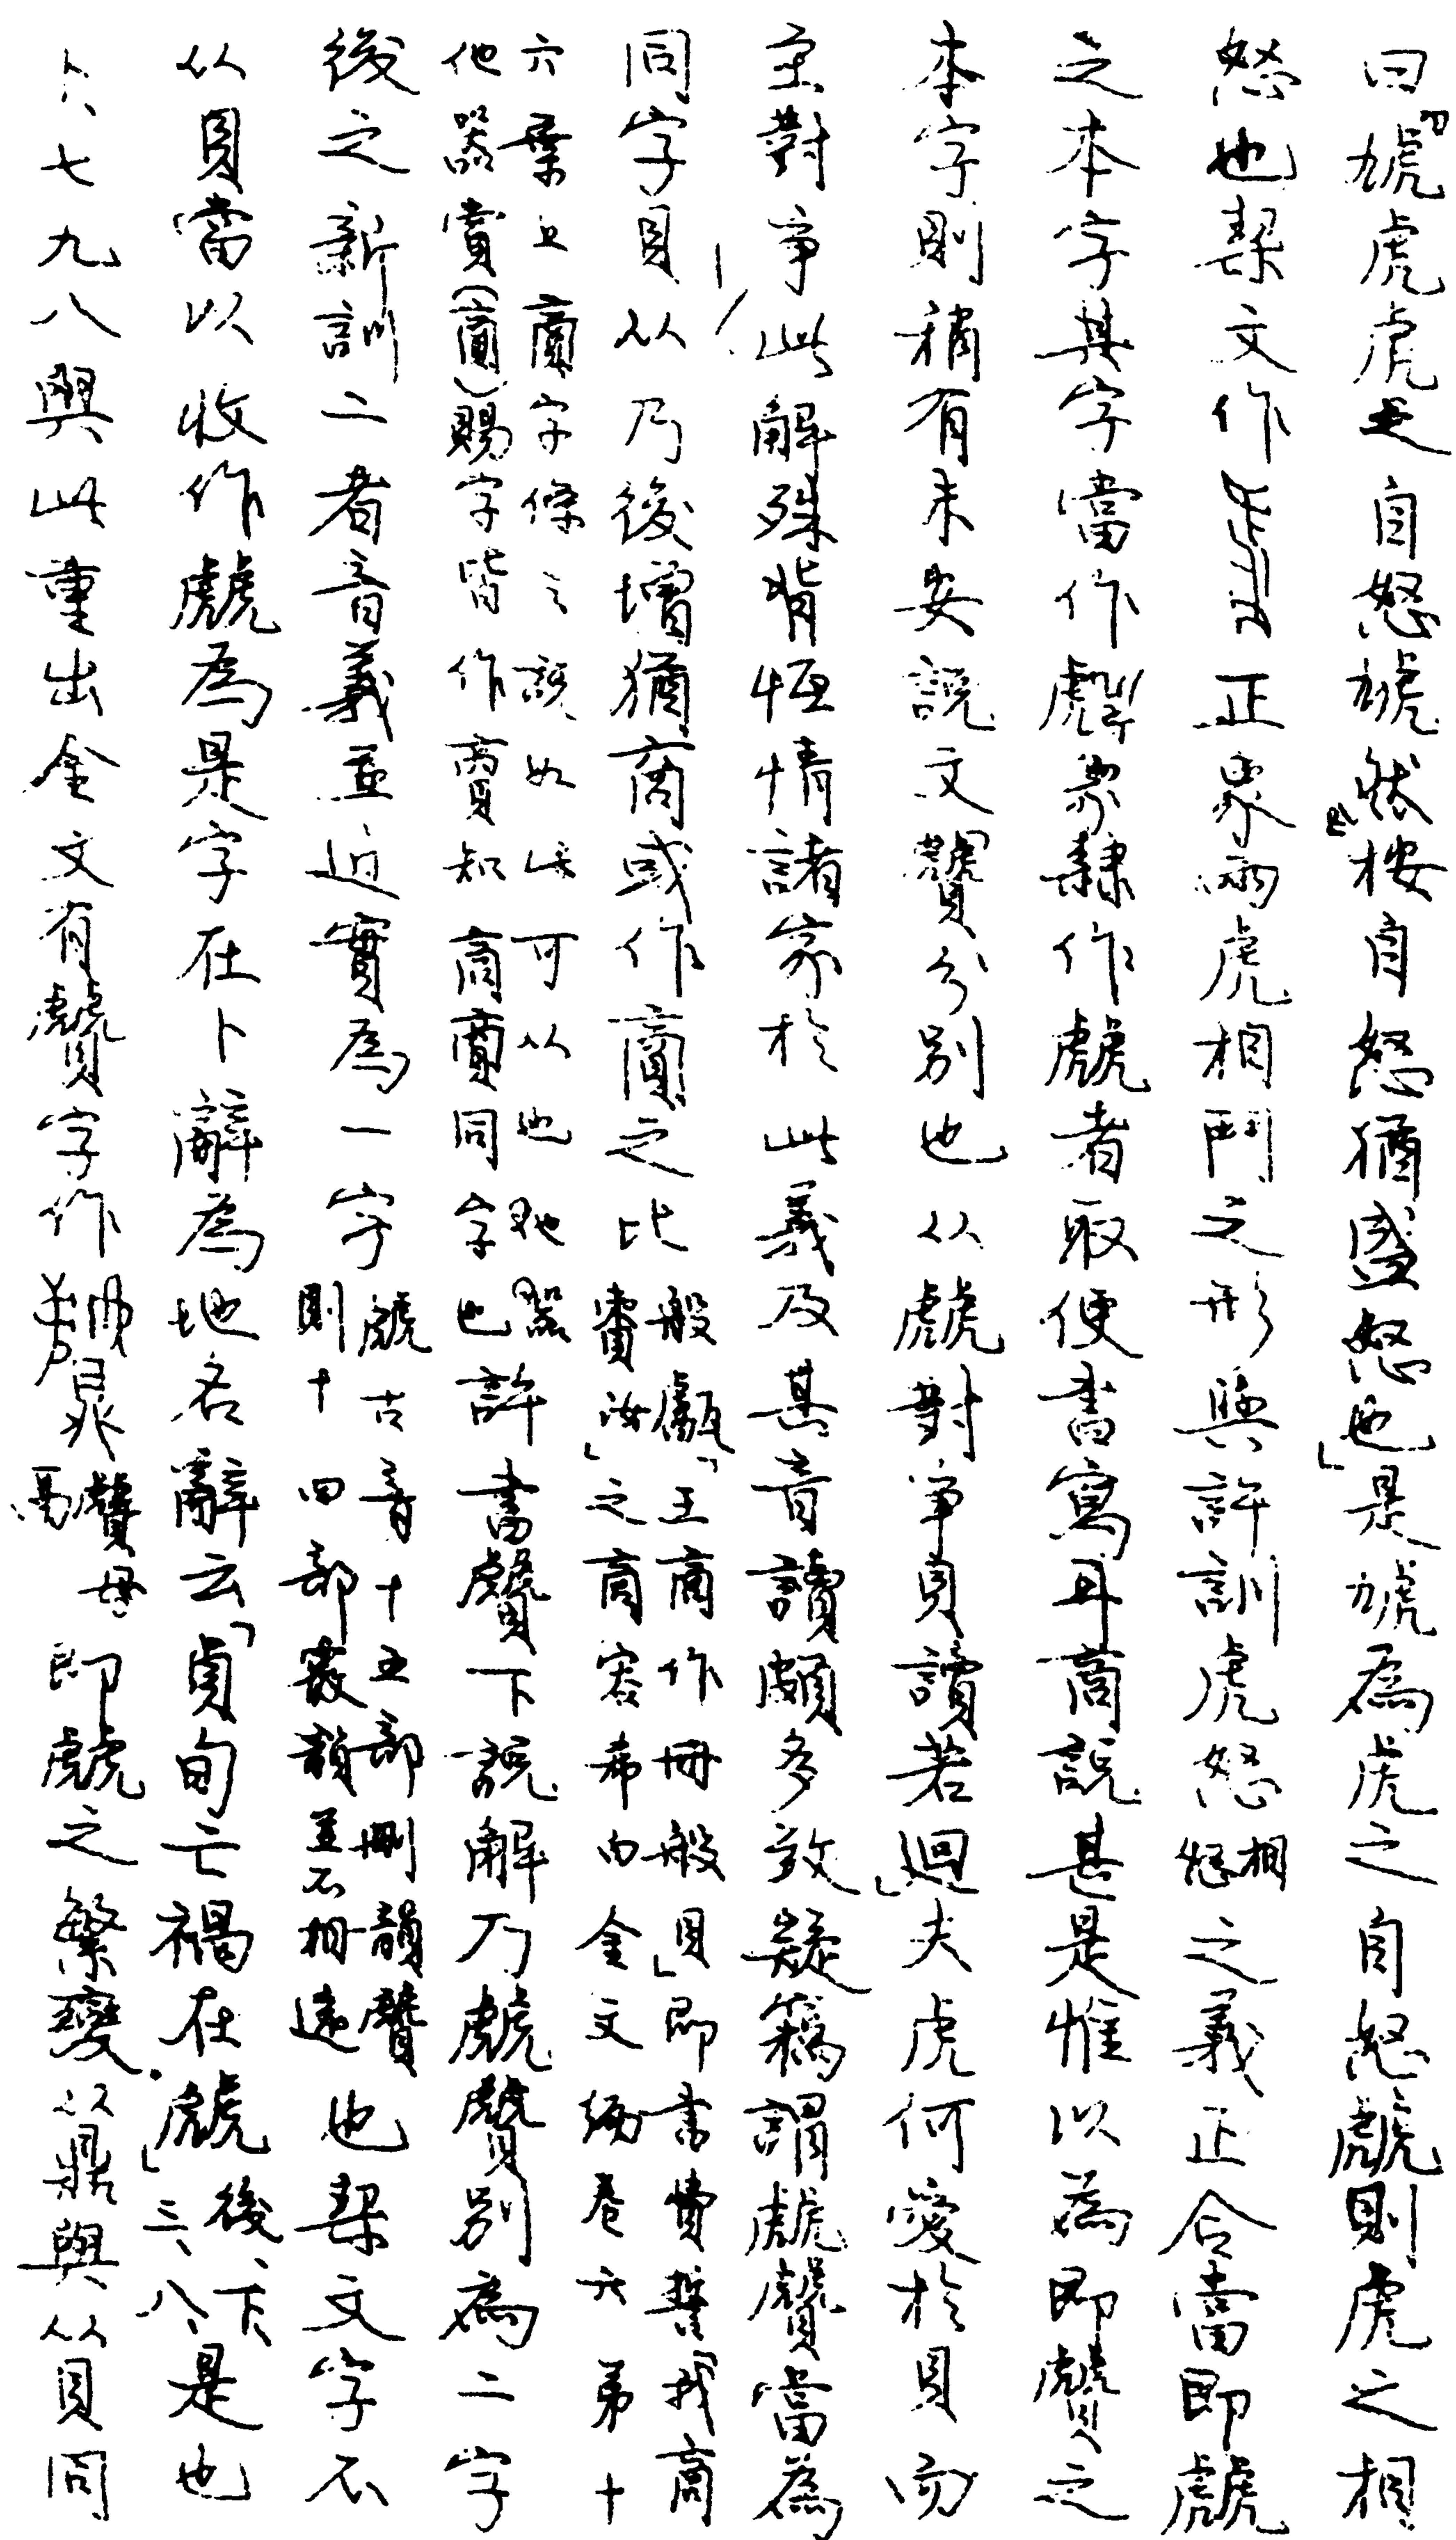 曰『虓虎虎之自怒虓然』桉自怒猶盛怒也」是虓為虎之自怒虤則虎之相
怒也」栔文作正象兩虎相鬥之形與許訓虎怒相怒之義正合當即虤
之本字其字當作象隸作虤者取便書寫耳商說甚是惟以為即贙之
本字則稍有未安說文贙分別也从虤對爭貝讀若迴」夫虎何愛於貝而
至對爭此解殊背恆情諸家於此義及其音讀頗多致疑竊謂虤贙當為
同字貝从乃後增猶商或作𧶜之比般甗「王商作冊般貝」即書費誓「我商賚汝」之商容希白金文編卷六第十
六葉上𧶜字條之說如此可从也他器他器賞(𧶜)賜字皆作𧶜知商𧶜同字也許書贙下說解乃虤贙別為二字
後之新訓二者音義並近實為一字虤古音十五部刪韻贙則十四部霰韻並不相遠也栔文字不
从貝當以收作虤為是字在卜辭為地名辭云「貞旬亡禍在虤」後、下、三、八、是也
卜、七九八與此重出金文有贙字作贙母鬲即虤之繁變从鼎與从貝同